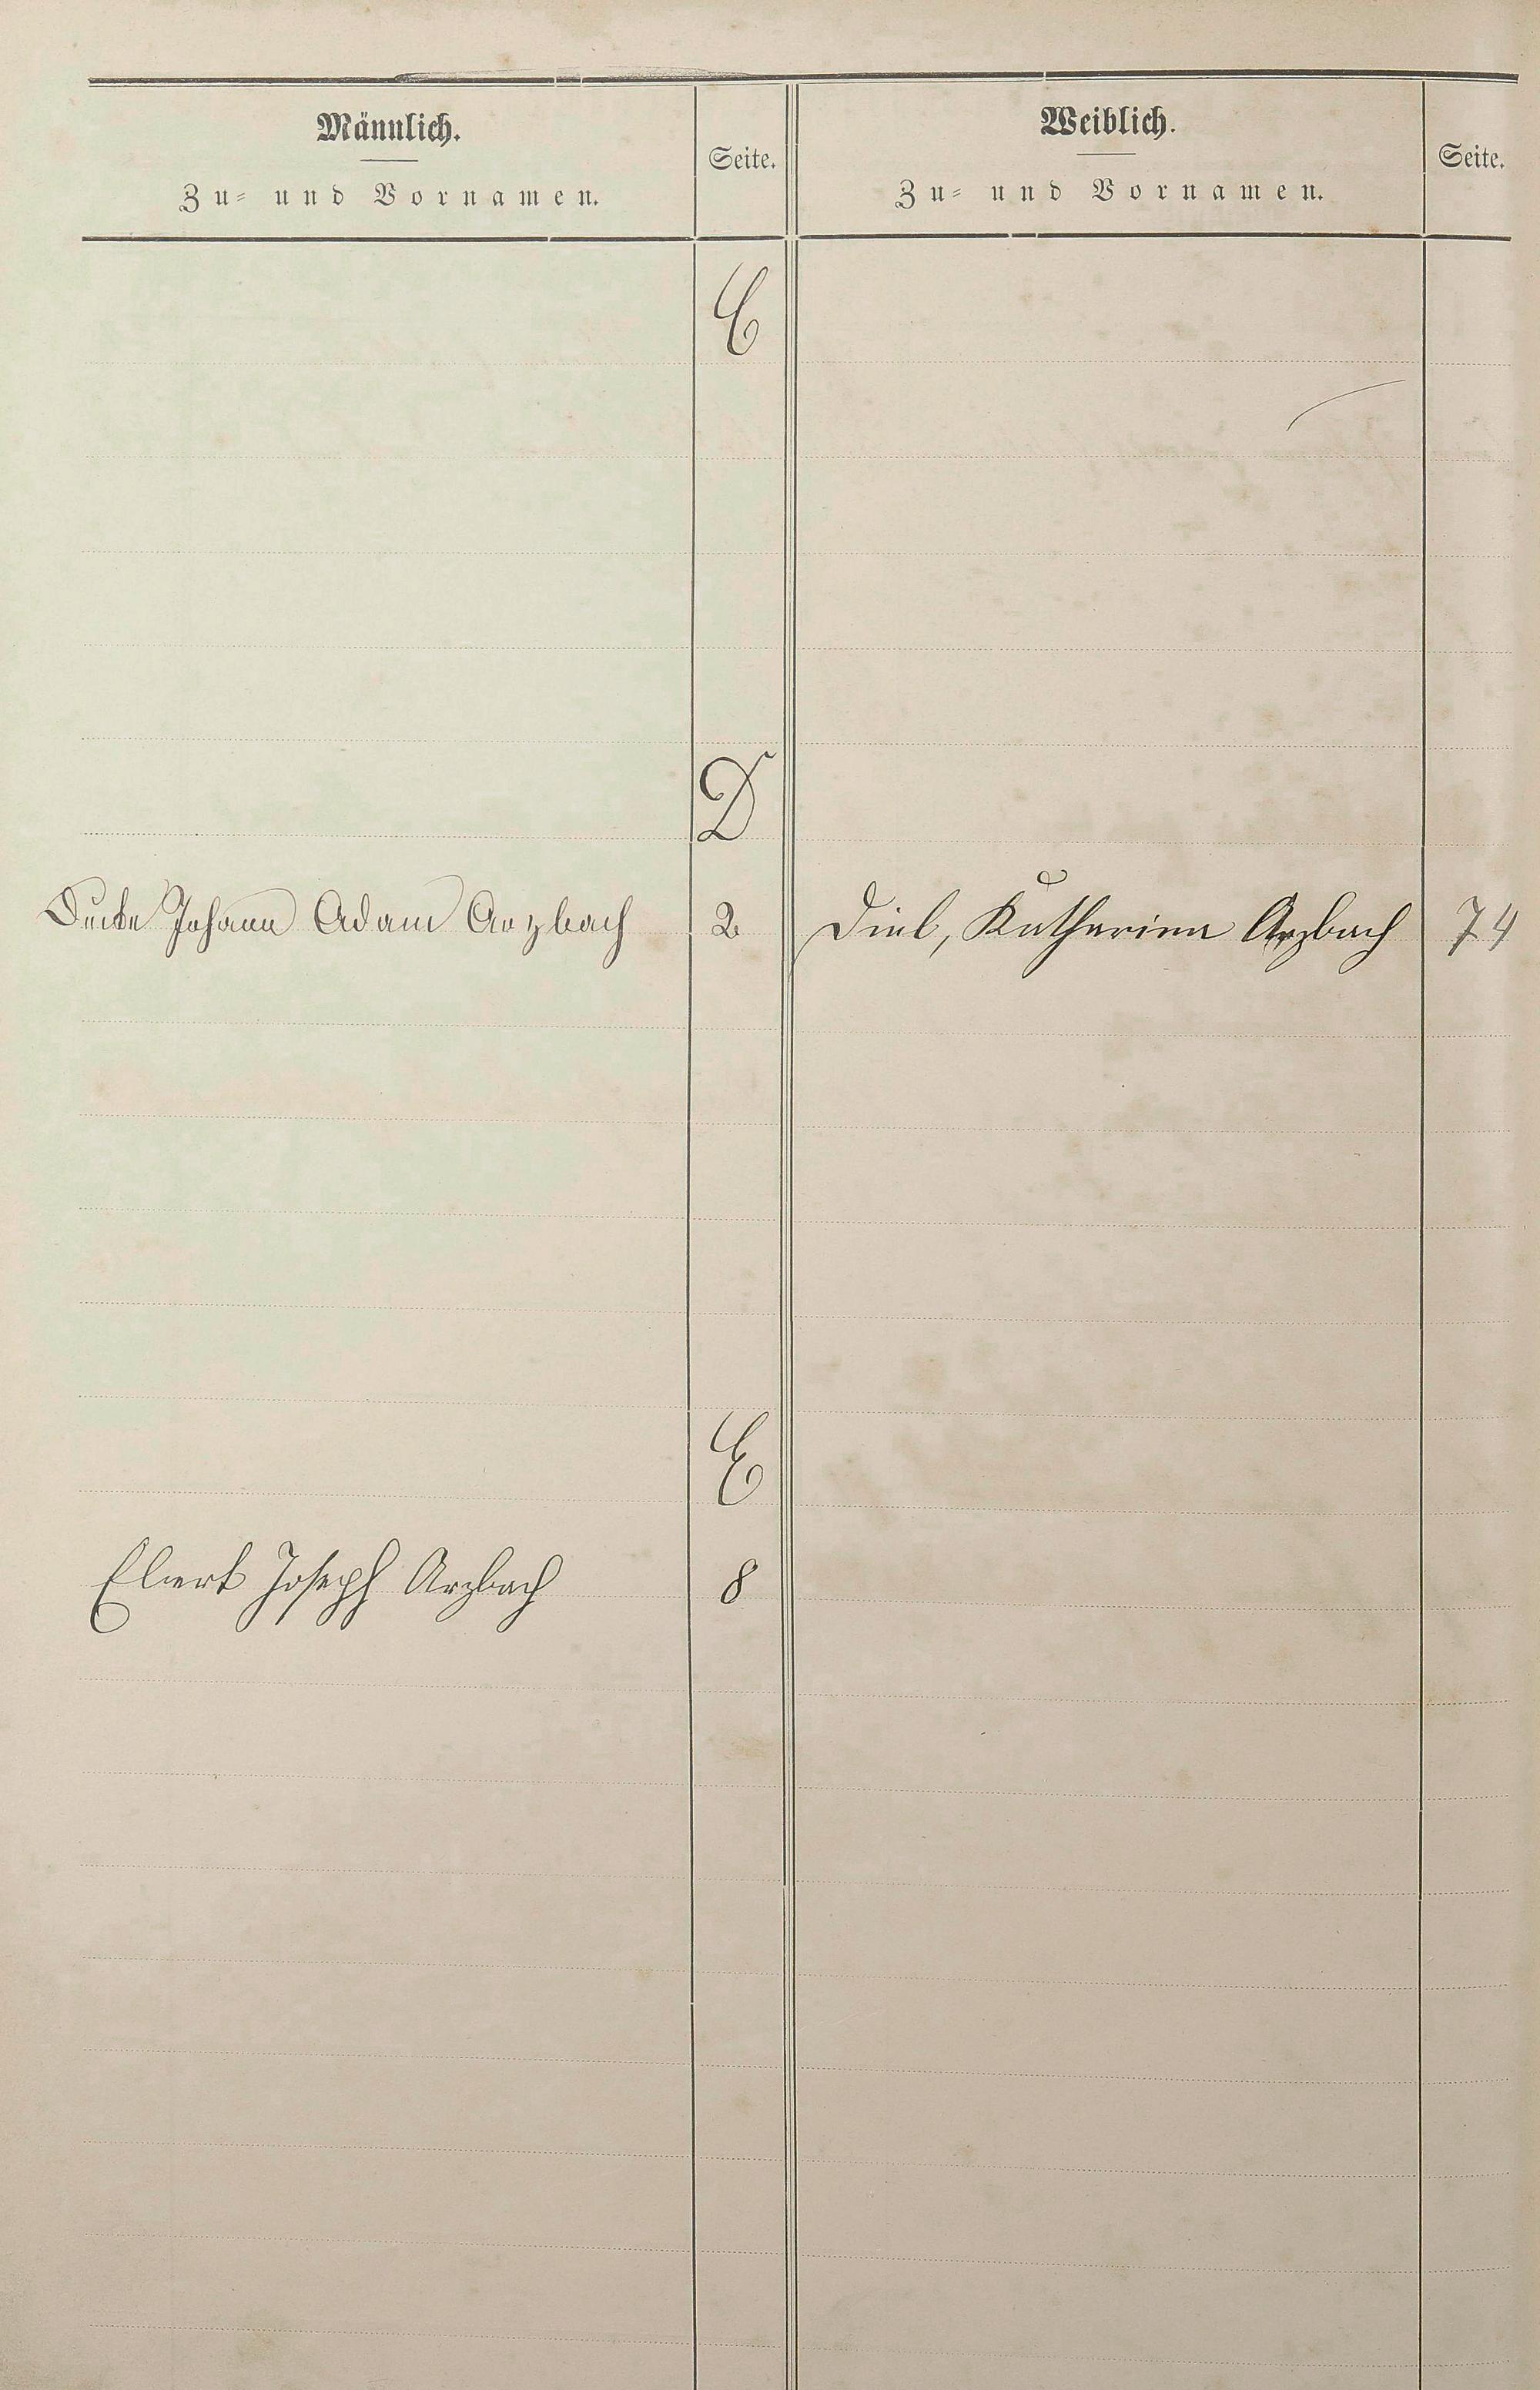 Männlich.
Zu- und Vornamen.
Seite.
Weiblich.
Zu- und Vornamen.
Seite.
C
D
Johann Adam Arzbach 2
Diel, Katharina Arzbach 74
E
Ebert Joseph Arzbach 8